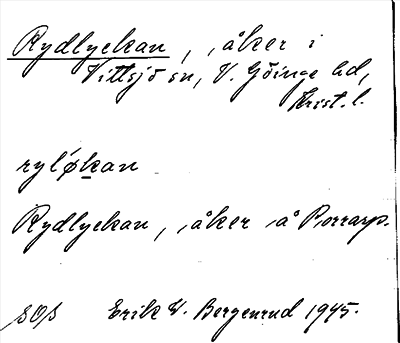 Rydlyckan, åker i
Vittsjö sn, V. Göinge hd,
Krist. l.
rylǿkan
Rydlyckan, åker å Porrarp.
SOS Erik W. Bergenrud 1945.